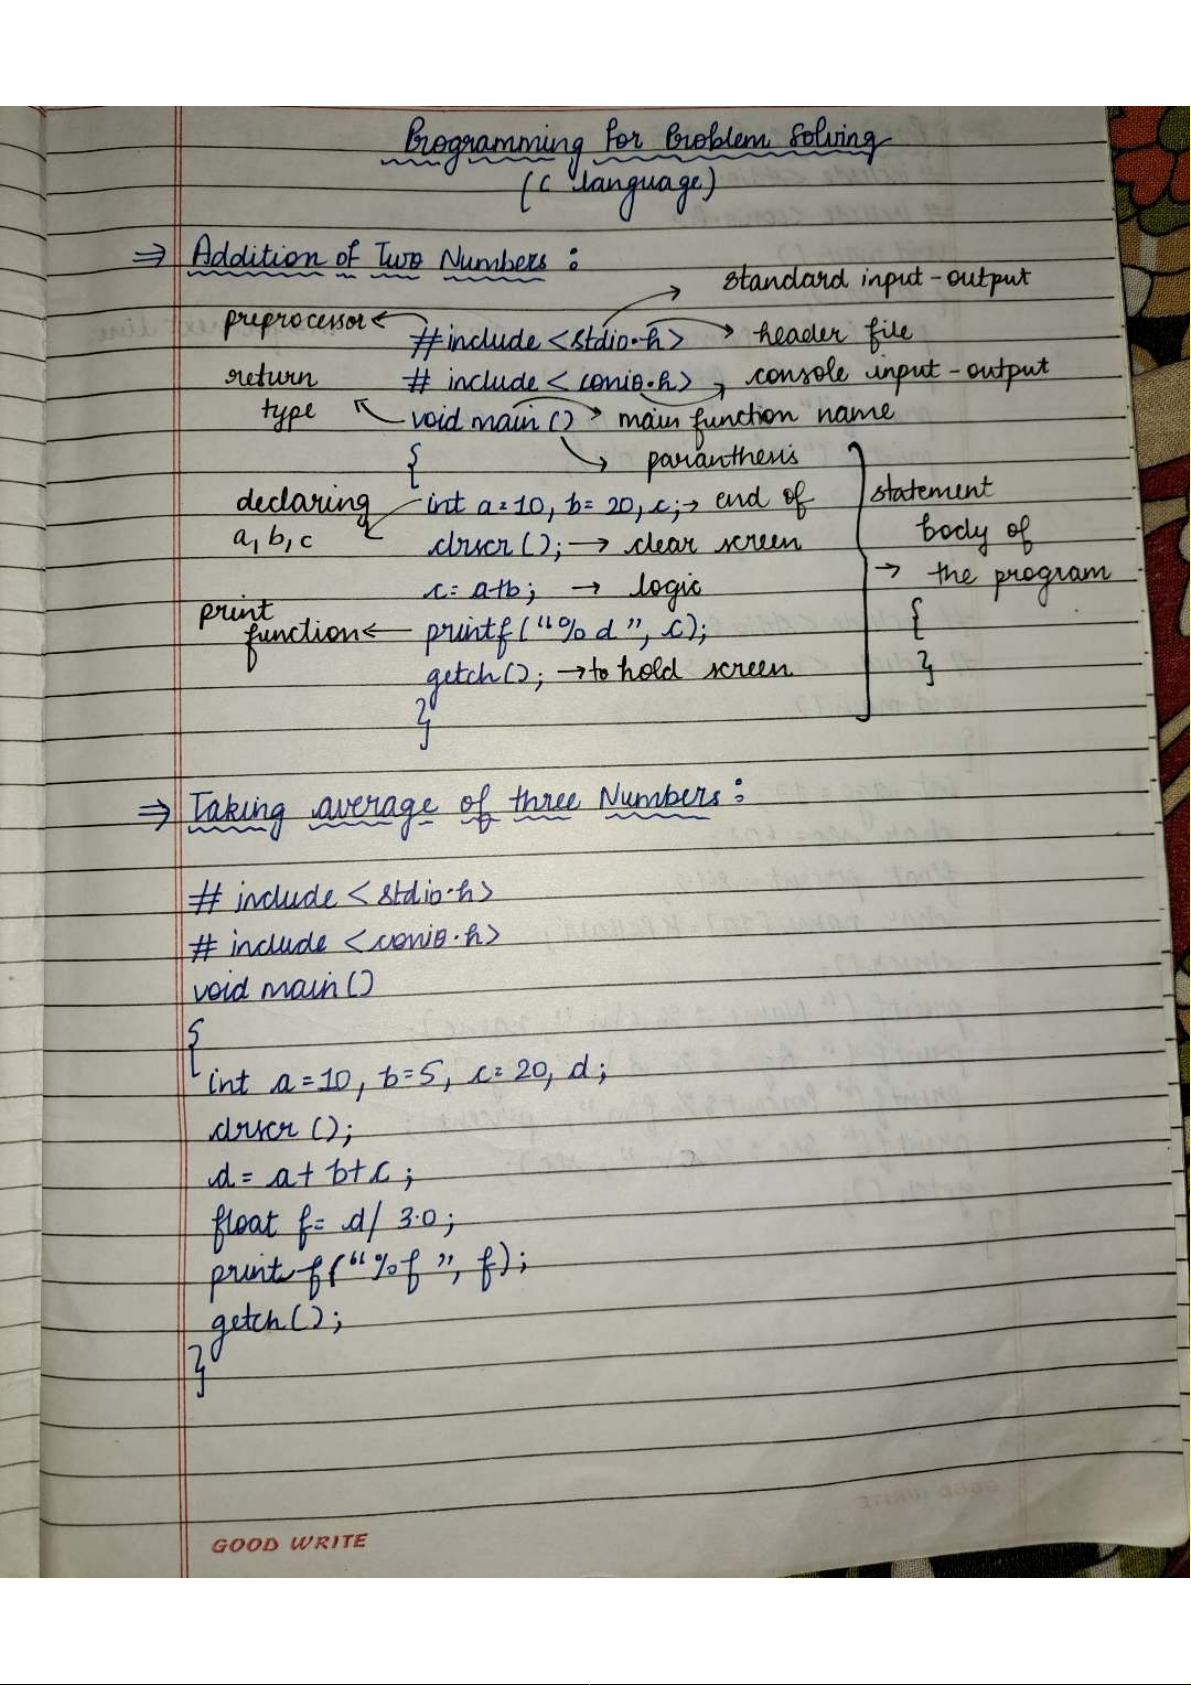 Programming for Problem Solving
(C language)
⇒ Addition of Two Numbers :
standard input-output
preprocessor ← #include <stdio.h> → header file
return # include < conio.h> → console input-output
type ← void main () → main function name
{ → paranthesis
declaring int a=10, b= 20, c; → end of statement
a, b, c clrscr (); → clear screen body of
c= a+b; → logic → the program
print {
function ← printf (“%d”, c);
getch(); → to hold screen }
}
⇒ Taking average of three Numbers :
# include <stdio.h>
# include <conio.h>
void main()
{
int a=10, b=5, c=20, d;
clrscr ();
d= a+ b+c;
float f= d/ 3.0;
printf(“%f”, f);
getch();
}
GOOD WRITE